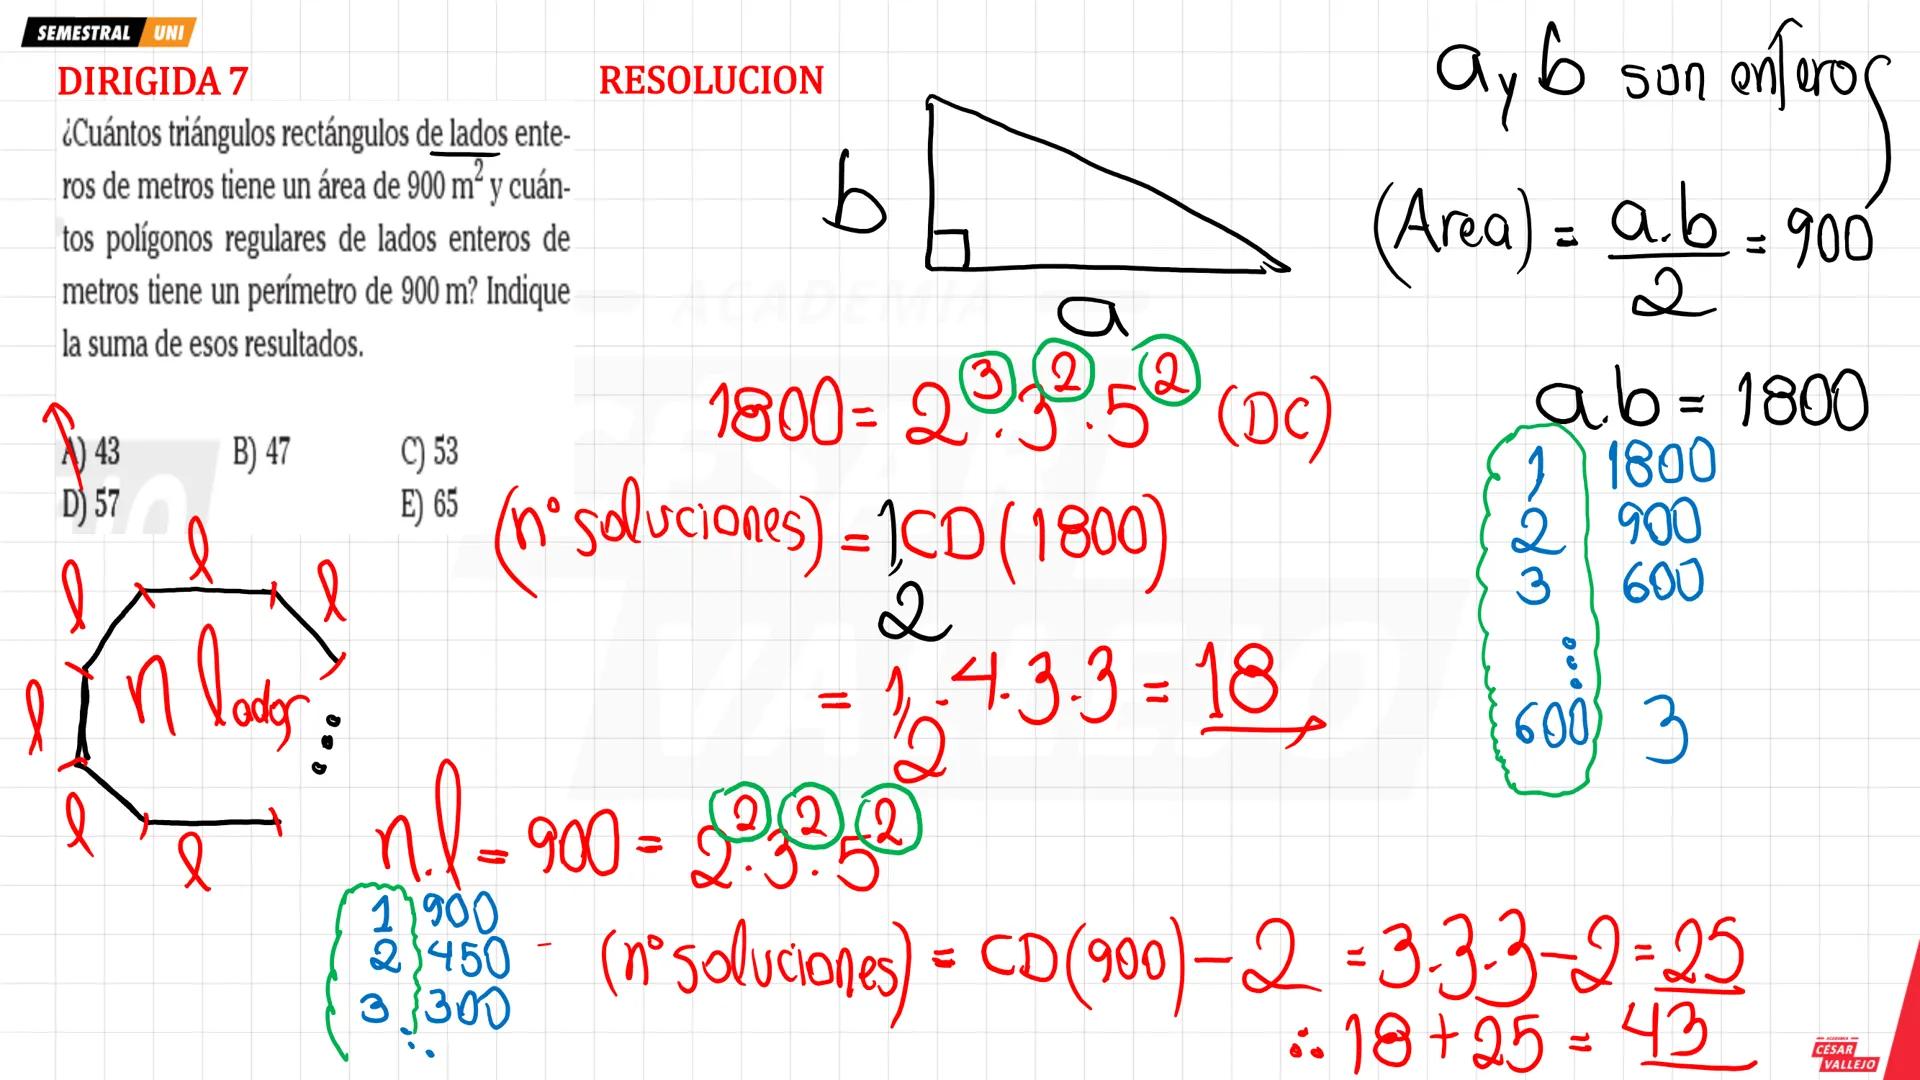 SEMESTRAL UNI
DIRIGIDA 7
¿Cuántos triángulos rectángulos de lados ente-
ros de metros tiene un área de 900 m² y cuán-
tos polígonos regulares de lados enteros de
metros tiene un perímetro de 900 m? Indique
la suma de esos resultados.
A) 43 B) 47 C) 53
D) 57 E) 65
RESOLUCION
b
a
a y b son enteros
(Area) = a.b/2 = 900
a.b = 1800
1 1800
2 900
3 600
⋮
600 3
ACADEMIA
CÉSAR
VALLEJO
1800 = 2³.3².5² (DC)
(n° soluciones) = 1/2 CD(1800)
= 1/2 . 4.3.3 = 18
l
l
l
l
l
l
n lados
n.l = 900 = 2².3².5²
1 900
2 450
3 300
(n° soluciones) = CD(900) - 2 = 3.3.3 - 2 = 25
∴ 18 + 25 = 43
ACADEMIA
CÉSAR
VALLEJO